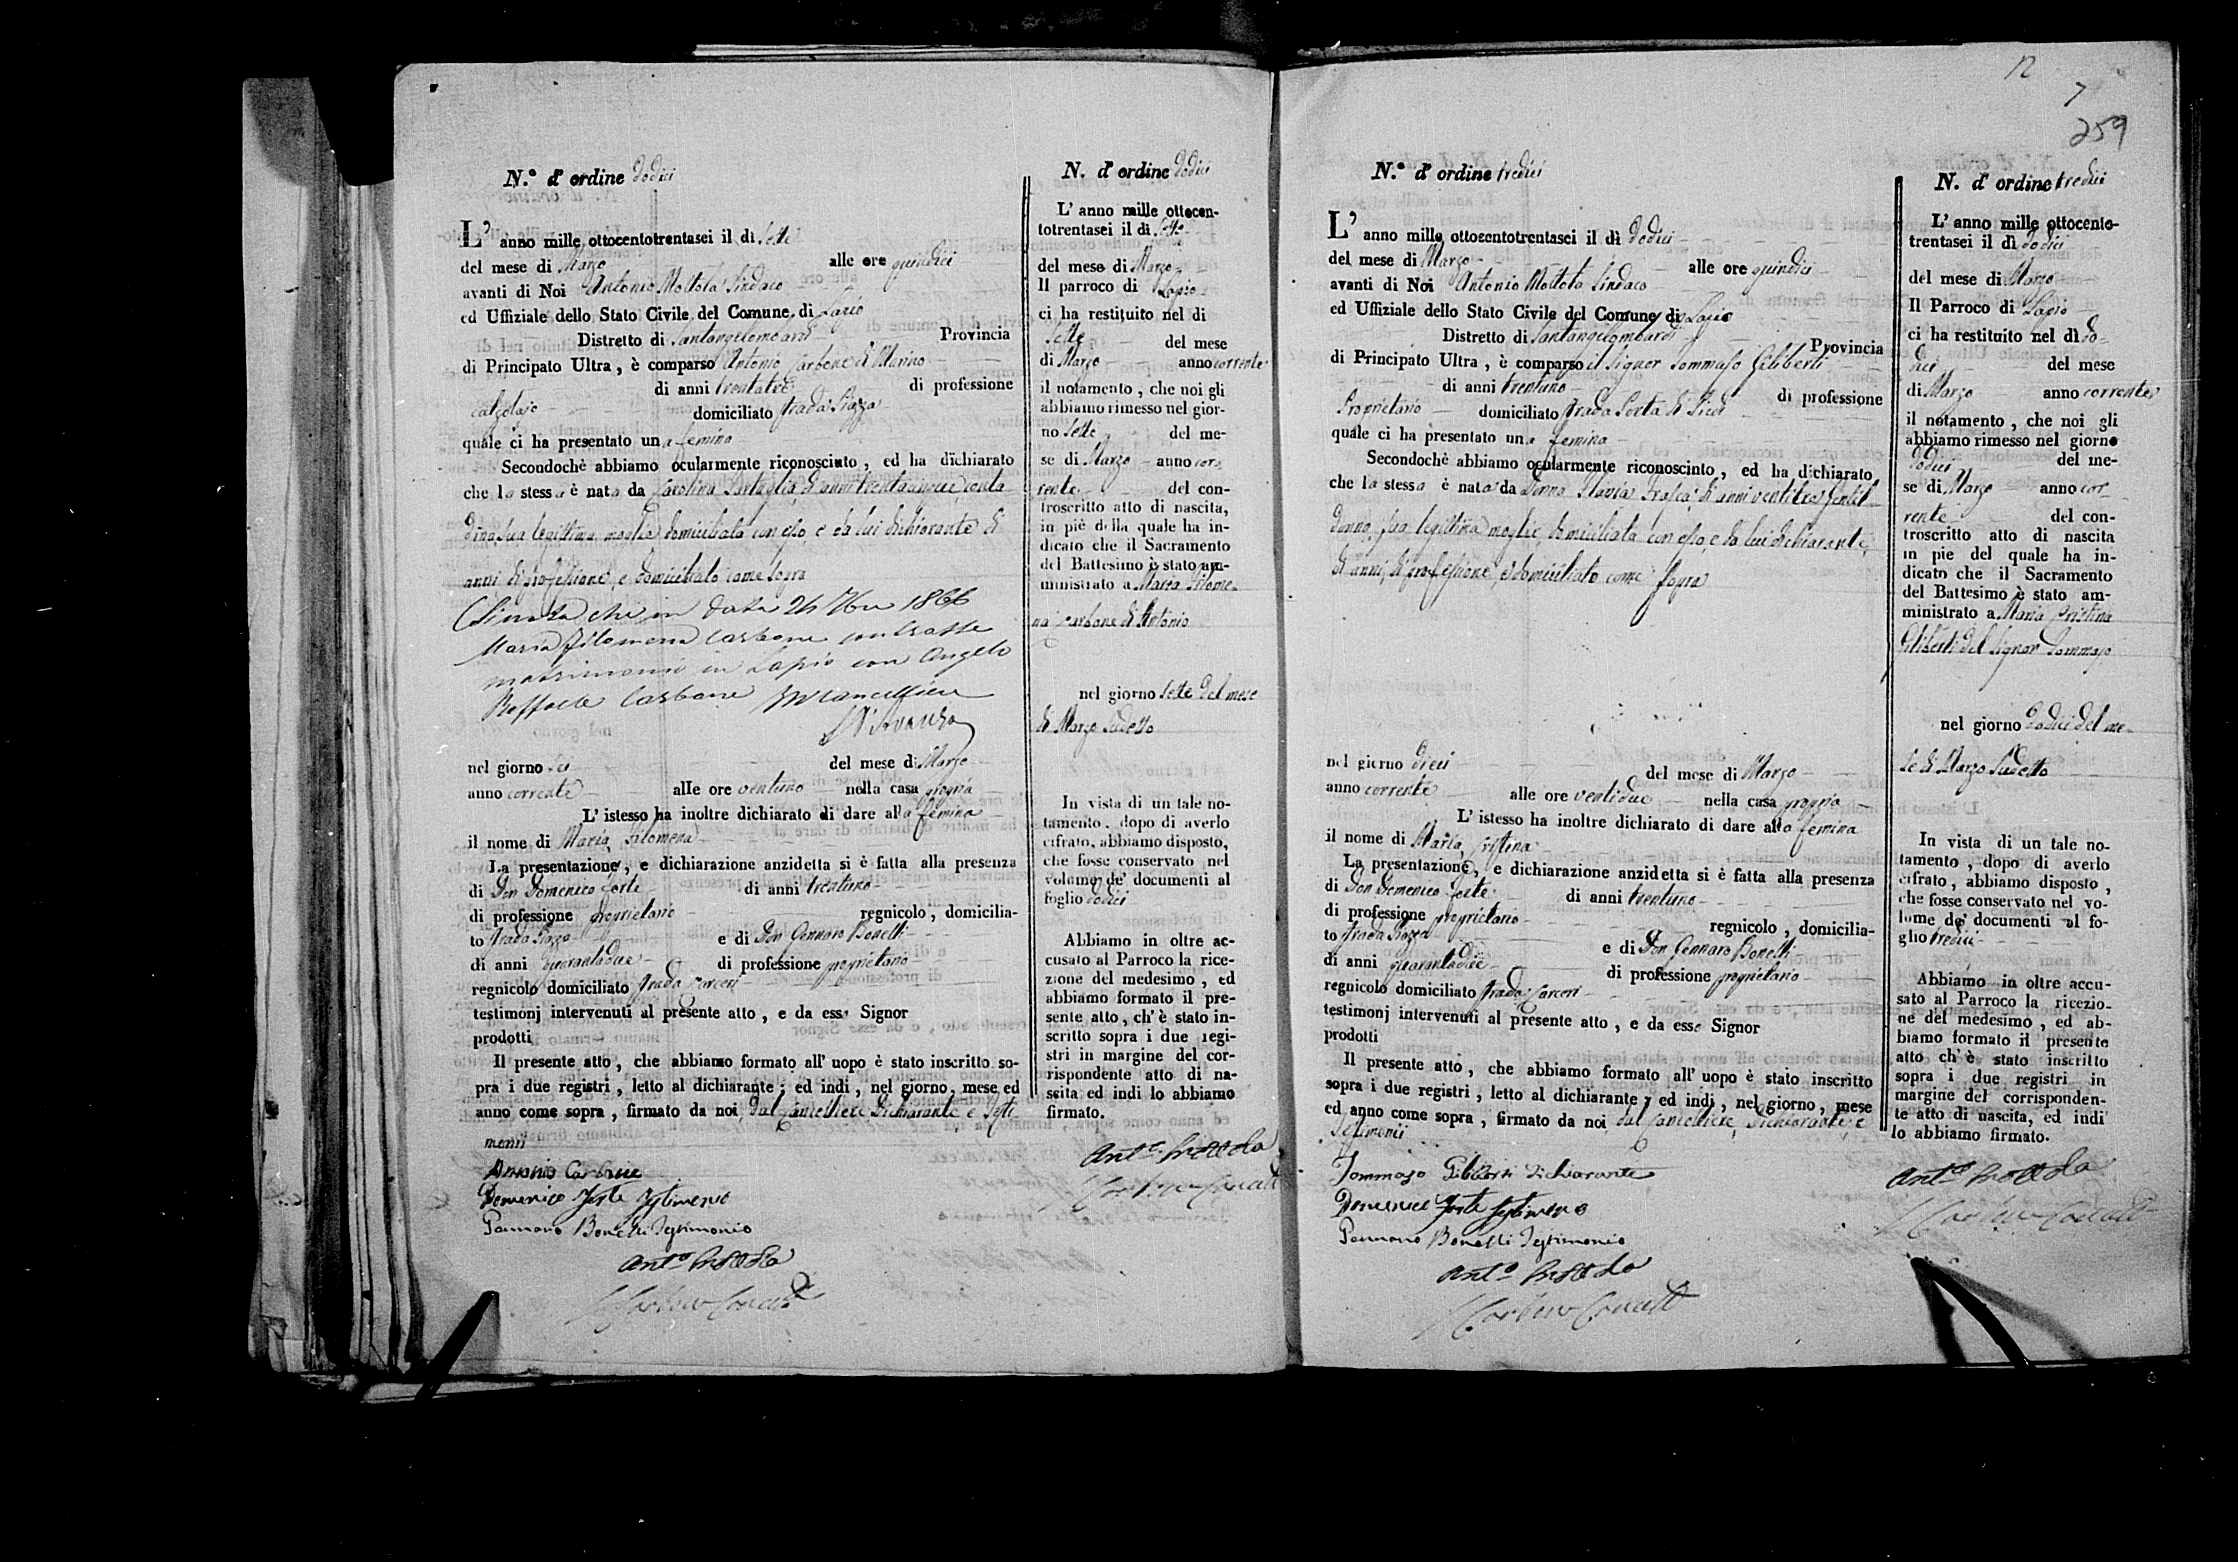 N.º d' ordine dodici
L' anno mille ottocentotrentasei il dì Sette
del mese di Marzo alle ore quindici
avanti di Noi Antonio Mottola Sindaco
ed Uffiziale dello Stato Civile del Comune di Lapio
Distretto di Santangelolombardi Provincia
di Principato Ultra, è comparso Antonio Carbone di
di anni trentatre di professione
calzolajo domiciliato strada Piazza
quale ci ha presentato una femina
Secondochè abbiamo ocularmente riconosciuto, ed ha dichiarato
che la stessa è nata da Carolina di anni conta
dina sua legittima moglie domiciliata con esso, e da lui dichiarante di
anni di professione, e domiciliato come sopra
Si nota che in data 1866
Maria Filomena Carbone contrasse
matrimonio in Lapio con Angelo
Raffaele Carbone
nel giorno sei del mese di Marzo
anno corrente alle ore ventuno nella casa propria
L' istesso ha inoltre dichiarato di dare alla femina
il nome di Maria Filomena
La presentazione, e dichiarazione anzidetta si è fatta alla presenza
di Don Domenico Forte di anni trentuno
di professione proprietario regnicolo, domicilia-
to strada Piazza e di Don Gennaro Bonelli
di anni quarantadue di professione proprietario
regnicolo domiciliato strada Carceri
testimonj intervenuti al presente atto, e da esso Signor
prodotti
Il presente atto, che abbiamo formato all' uopo è stato inscritto so-
pra i due registri, letto al dichiarante; ed indi, nel giorno, mese ed
anno come sopra, firmato da noi dal Cancelliere Dichiarante e Testi
monii
Antonio Carbone
Domenico Forte Testimonio
Gennaro Bonelli Testimonio
Ant.º Mottola
N. d' ordine dodici
L' anno mille ottocen-
totrentasei il dì Sette
del mese di Marzo
Il parroco di Lapio
ci ha restituito nel di
Sette del mese
di Marzo anno corrente
il notamento, che noi gli
abbiamo rimesso nel gior-
no Sette del me-
se di Marzo anno cor-
rente del con-
troscritto atto di nascita,
in piè della quale ha in-
dicato che il Sacramento
del Battesimo è stato am-
ministrato a Maria Filome-
na Carbone di Antonio
nel giorno Sette del mese
di Marzo sudetto
In vista di un tale no-
tamento, dopo di averlo
cifrato, abbiamo disposto,
che fosse conservato nel
volume de' documenti al
foglio dodici
Abbiamo in oltre ac-
cusato al Parroco la rice-
zione del medesimo, ed
abbiamo formato il pre-
sente atto, ch' è stato in-
scritto sopra i due regi-
stri in margine del cor-
rispondente atto di na-
scita ed indi lo abbiamo
firmato.
Ant.º Mottola
12
7
259
N.º d' ordine tredici
L' anno mille ottocentotrentasei il dì dodici
del mese di Marzo alle ore quindici
avanti di Noi Antonio Mottola Sindaco
ed Uffiziale dello Stato Civile del Comune di Lapio
Distretto di Santangelolombardi Provincia
di Principato Ultra, è comparso il Signor Tommaso Giliberti
di anni trentuno di professione
Proprietario domiciliato strada Porta di
quale ci ha presentato una femina
Secondochè abbiamo ocularmente riconosciuto, ed ha dichiarato
che la stessa è nata da Donna di anni ventitre Gentil
donna, sua legittima moglie domiciliata con esso, e da lui dichiarante,
di anni, di professione, e domiciliato come sopra
nel giorno dieci del mese di Marzo
anno corrente alle ore ventidue nella casa propria
L' istesso ha inoltre dichiarato di dare alla femina
il nome di Maria Cristina
La presentazione, e dichiarazione anzidetta si è fatta alla presenza
di Don Domenico Forte di anni trentuno
di professione proprietario regnicolo, domicilia-
to strada Piazza e di Don Gennaro Bonelli
di anni quarantadue di professione proprietario
regnicolo domiciliato strada Carceri
testimonj intervenuti al presente atto, e da esso Signor
prodotti
Il presente atto, che abbiamo formato all' uopo è stato inscritto
sopra i due registri, letto al dichiarante; ed indi, nel giorno, mese
ed anno come sopra, firmato da noi dal Cancelliere, Dichiarante, e
Testimonii
Tommaso Giliberti Dichiarante
Domenico Forte Testimonio
Gennaro Bonelli Testimonio
Ant.º Mottola
N. d' ordine tredici
L' anno mille ottocento-
trentasei il dì dodici
del mese di Marzo
Il Parroco di Lapio
ci ha restituito nel dì do-
dici del mese
di Marzo anno corrente
il notamento, che noi gli
abbiamo rimesso nel giorno
dodici del me-
se di Marzo anno cor-
rente del con-
troscritto atto di nascita
in piè del quale ha in-
dicato che il Sacramento
del Battesimo è stato am-
ministrato a Maria Cristina
Giliberti del Signor Tommaso
nel giorno dodici del me-
se di Marzo sudetto
In vista di un tale no-
tamento, dopo di averlo
cifrato, abbiamo disposto,
che fosse conservato nel vo-
lume de' documenti al fo-
glio tredici
Abbiamo in oltre accu-
sato al Parroco la ricezio-
ne del medesimo, ed ab-
biamo formato il presente
atto ch' è stato inscritto
sopra i due registri in
margine del corrisponden-
te atto di nascita, ed indi
lo abbiamo firmato.
Ant.º Mottola